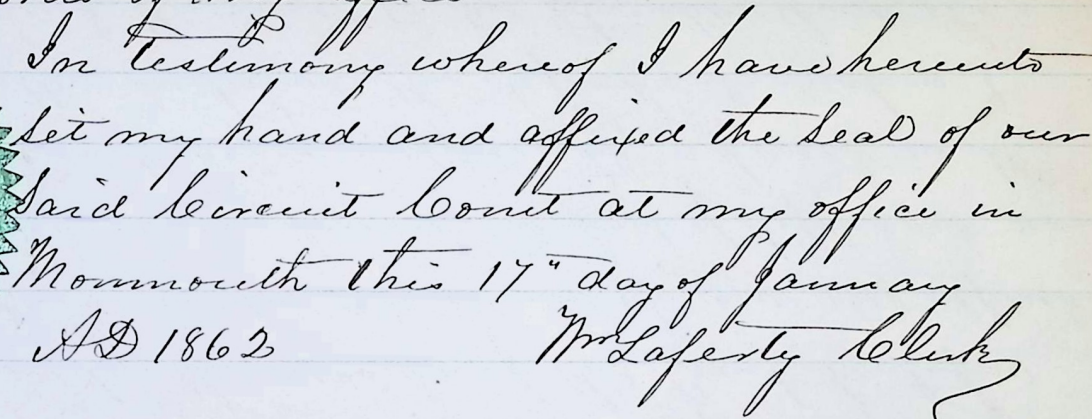 of my office
In testimony whereof I have hereunto
set my hand and affixed the seal of our
said Circuit Court at my office in
Monmouth this 17" day of January
AD 1862 Wm Laferty Clerk